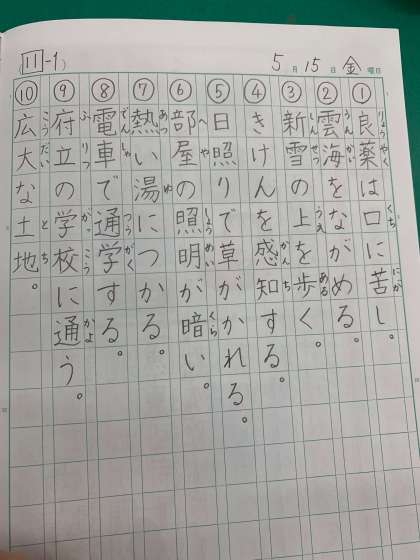 11-1
5月15日金曜日
①良薬は口に苦し。
りょうやく くち にが
②雲海をながめる。
うんかい
③新雪の上を歩く。
しんせつ うえ ある
④きけんを感知する。
かんち
⑤日照りで草がかれる。
⑥部屋の照明が暗い。
へや しょうめい くら
⑦熱い湯につかる。
あつ ゆ
⑧電車で通学する。
でんしゃ つうがく
⑨府立の学校に通う。
ふりつ がっこう かよ
⑩広大な土地。
こうだい とち